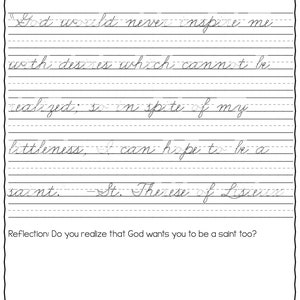 "God would never inspire me
with desires which cannot be
realized; so in spite of my
littleness, I can hope to be a
saint. —St. Therese of Lisieux
Reflection: Do you realize that God wants you to be a saint too?